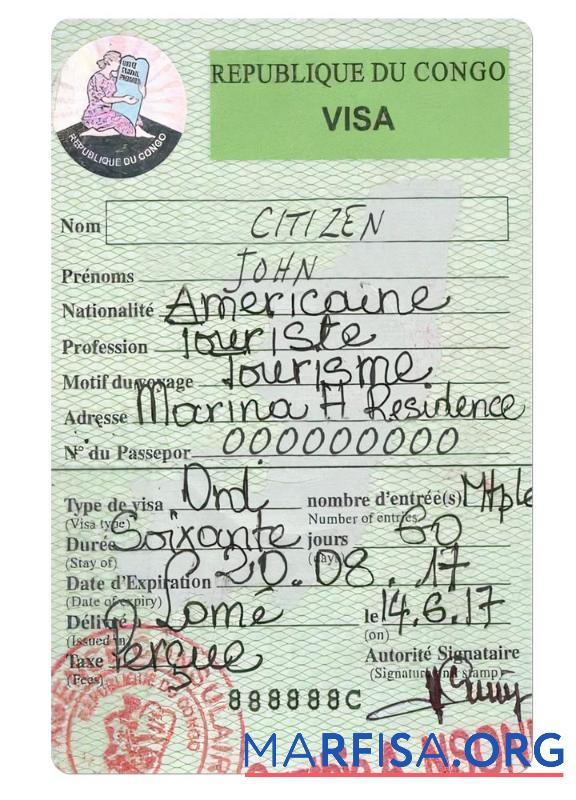 REPUBLIQUE DU CONGO
VISA
REPUBLIQUE DU CONGO
Nom CITIZEN
Prénoms JOHN
Nationalité Américaine
Profession Touriste
Motif du voyage Tourisme
Adresse Marina H Residence
N° du Passepor 000000000
Type de visa Ord. nombre d'entrée(s) Mtple
(Visa type) Number of entries
Durée Soixante jours 60
(Stay of) (day)
Date d'Expiration 20.08.17
(Date of expiry)
Délivré Lomé le 14.6.17
(Issued in) (on)
Taxe Perçue Autorité Signataire
(Fees) (Signature and stamp)
888888C
REPUBLIQUE DU CONGO
MARFISA.ORG